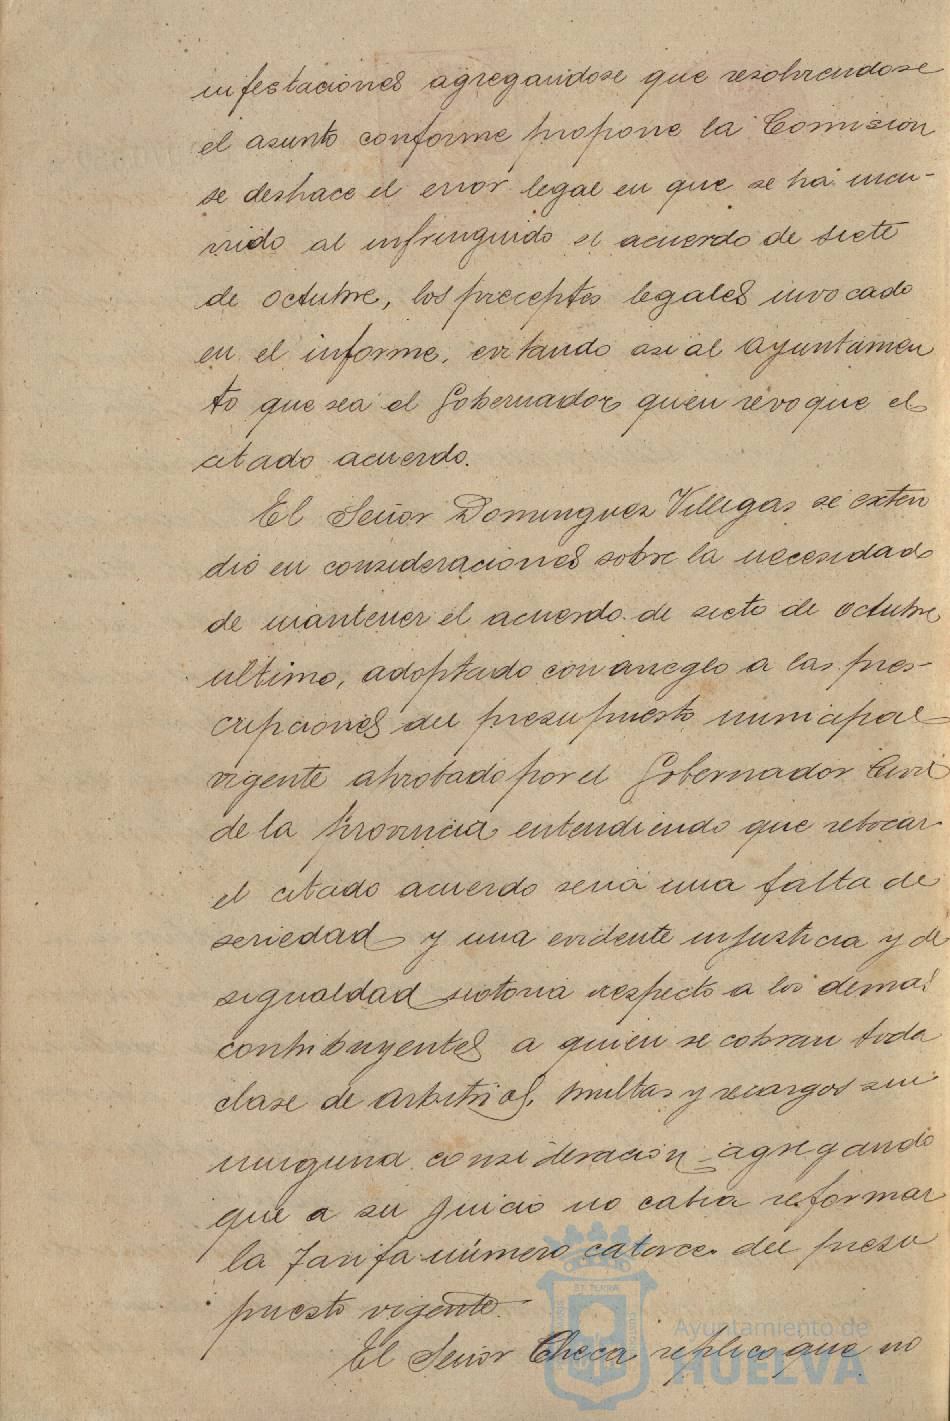 infestaciones agregandose que resolviendose
el asunto conforme propone la Comision
se deshace el error legal en que se ha incu-
rrido al infringuido el acuerdo de siete
de octubre, los preceptos legales invocado
en el informe, evitando asi al Ayuntamien
to que sea el Gobernador quien revoque el
citado acuerdo.
El Señor Dominguez Villegas se exten
dió en consideraciones sobre la necesidad
de mantener el acuerdo de siete de octubre
ultimo, adoptado con arreglo a las pres-
cripciones del presupuesto municipal
vigente aprobado por el Gobernador Civil
de la Provincia entendiendo que rebocar
el citado acuerdo seria una falta de
seriedad y una evidente injusticia y de
sigualdad notoria respecto a los demas
contribuyentes a quien se cobran toda
clase de arbitrios, multas y recargos sin
ninguna consideración agregando
que a su juicio no cabia reformar
la Tarifa número catorce del presu
puesto vigente.
El Señor Checa replico que no
Ayuntamiento de
HUELVA